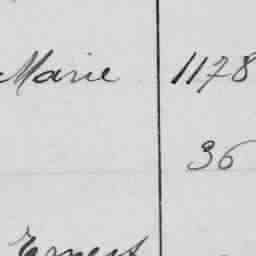 Marie 1178
36
Ernest